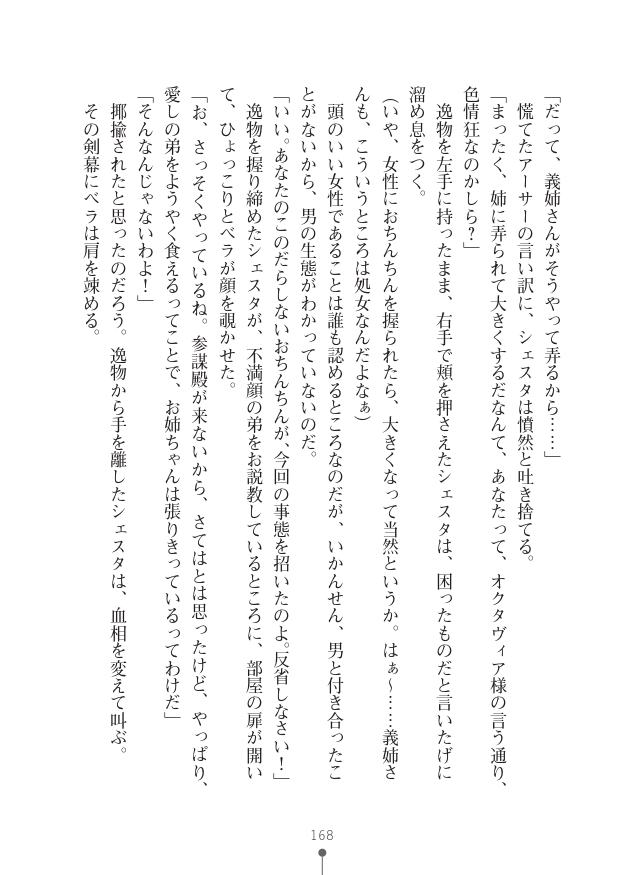 「だって、義姉さんがそうやって弄るから……」
慌てたアーサーの言い訳に、シェスタは憤然と吐き捨てる。
「まったく、姉に弄られて大きくするだなんて、あなたって、オクタヴィア様の言う通り、
色情狂なのかしら？」
逸物を左手に持ったまま、右手で頬を押さえたシェスタは、困ったものだと言いたげに
溜め息をつく。
（いや、女性におちんちんを握られたら、大きくなって当然というか。はぁ～……義姉さ
んも、こういうところは処女なんだよなぁ）
頭のいい女性であることは誰も認めるところなのだが、いかんせん、男と付き合ったこ
とがないから、男の生態がわかっていないのだ。
「いい。あなたのこのだらしないおちんちんが、今回の事態を招いたのよ。反省しなさい！」
逸物を握り締めたシェスタが、不満顔の弟をお説教しているところに、部屋の扉が開い
て、ひょっこりとベラが顔を覗かせた。
「お、さっそくやっているね。参謀殿が来ないから、さてはとは思ったけど、やっぱり、
愛しの弟をようやく食えるってことで、お姉ちゃんは張りきっているってわけだ」
「そんなんじゃないわよ！」
揶揄されたと思ったのだろう。逸物から手を離したシェスタは、血相を変えて叫ぶ。
その剣幕にベラは肩を竦める。
168